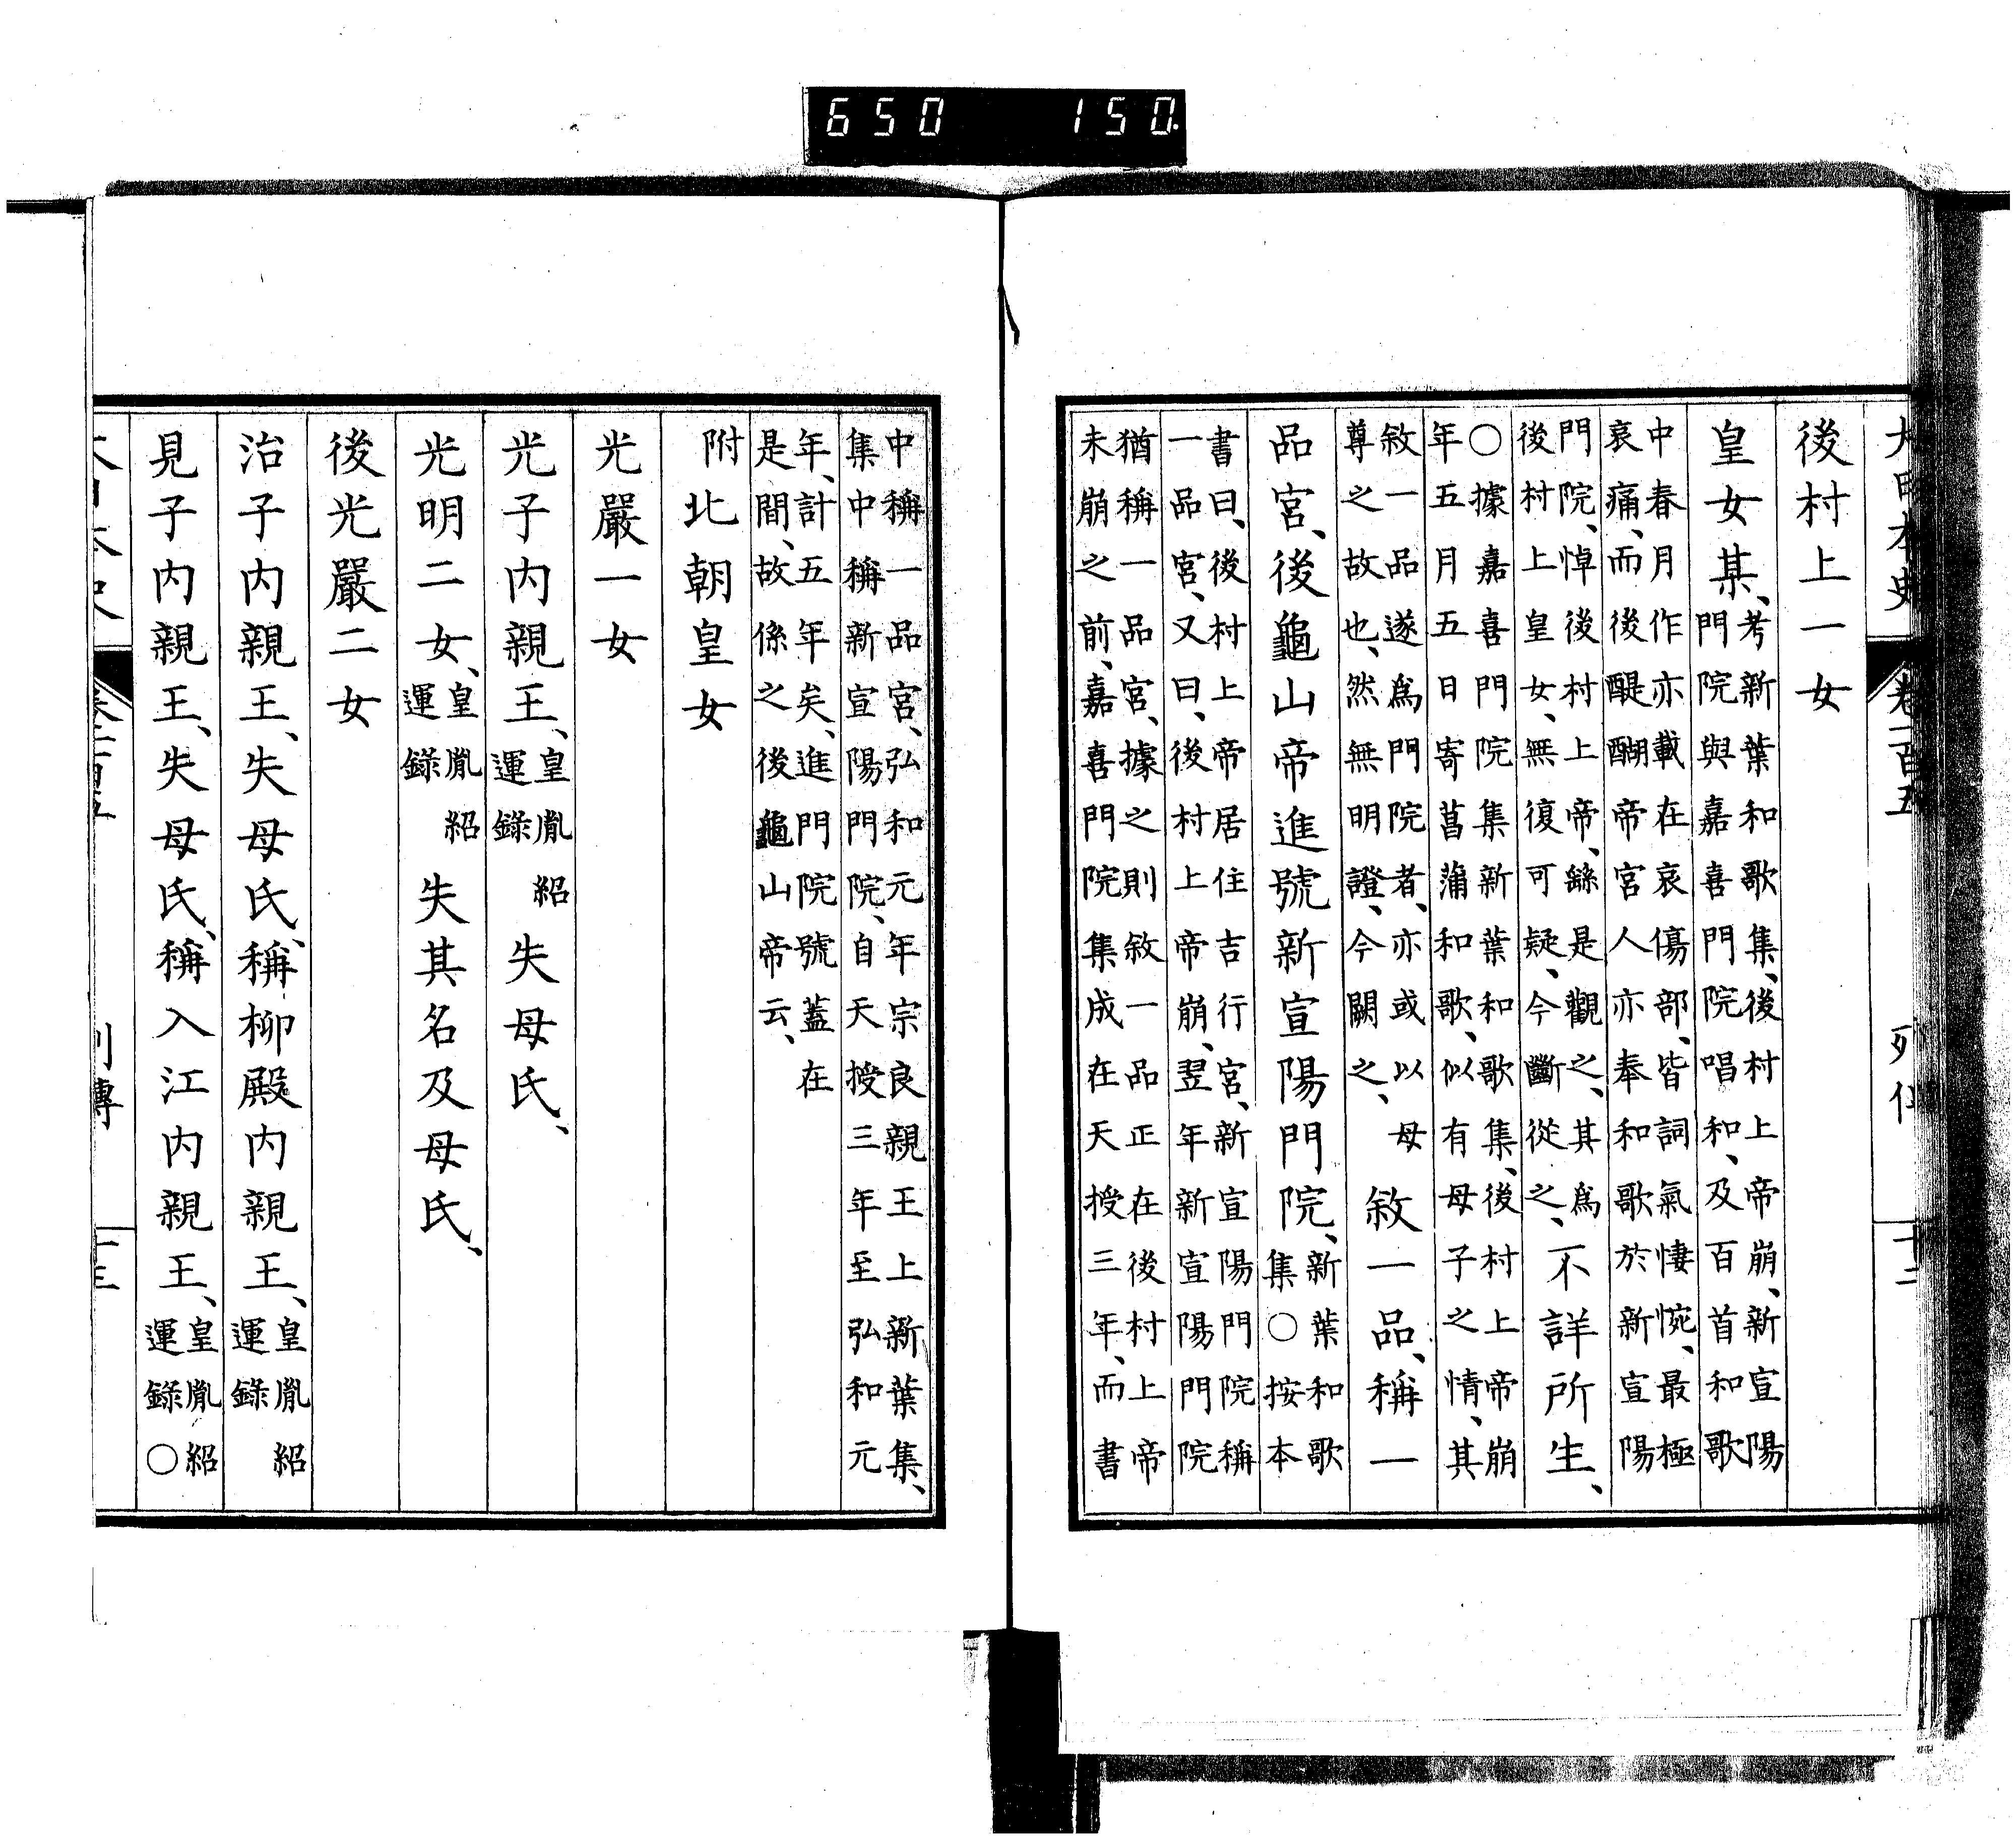 650 150.
大日本史 卷一百五 列傳 十二
後村上一女
皇女某、考新葉和歌集、後村上帝崩、新宣陽
門院與嘉喜門院唱和、及百首和歌
中春月作亦載在哀傷部、皆詞氣悽惋、最極
哀痛、而後醍醐帝宮人亦奉和歌於新宣陽
門院、悼後村上帝、繇是觀之、其爲
後村上皇女、無復可疑、今斷從之、不詳所生、
○據嘉喜門院集新葉和歌集、後村上帝崩
年五月五日寄菖蒲和歌、似有母子之情、其
敘一品遂爲門院者、亦或以母
尊之故也、然無明證、今闕之、敘一品、稱一
品宮、後龜山帝進號新宣陽門院、新葉和歌
集○按本
書曰、後村上帝居住吉行宮、新宣陽門院稱
一品宮、又曰、後村上帝崩、翌年新宣陽門院
猶稱一品宮、據之則敘一品正在後村上帝
未崩之前、嘉喜門院集成在天授三年、而書
中稱一品宮、弘和元年宗良親王上新葉集、
集中稱新宣陽門院、自天授三年至弘和元
年、計五年矣、進門院號蓋在
是間、故係之後龜山帝云、
附北朝皇女
光嚴一女
光子内親王、皇胤紹
運錄失母氏、
光明二女、皇胤紹
運錄失其名及母氏、
後光嚴二女
治子内親王、失母氏、稱柳殿内親王、皇胤紹
運錄
見子内親王、失母氏、稱入江内親王、皇胤紹
運錄○